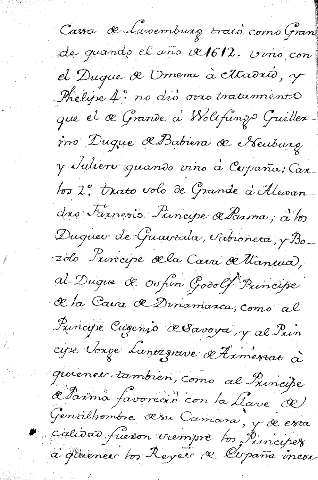 Cassa de Luxemburg trató como Gran
de quando el año de 1612. vino con
el Duque de Umena à Madrid, y
Phelipe 4.º no dió otro tratamiento
que el de Grande à Wolffango Guiller-
mo Duque de Babiera de Neuburg
y Juliers quando vino à España; Car-
los 2.º trato solo de Grande á Alexan-
dro Farnesio Principe de Parma; à los
Duques de Guastala, Sabioneta, y Bo-
zolo Principe de la Casa de Mantua,
al Duque de Godolf Principe
de la Casa de Dinamarca, como al
Principe Eugenio de Savoya, y al Prin
cipe Jorge Lantzgrave de Armestat à
quienes tambien, como al Principe
de Parma favoreció con la Llave de
Gentilhombre de su Camara, y de esta
calidad fueron siempre los Principes
à quienes los Reyes de España